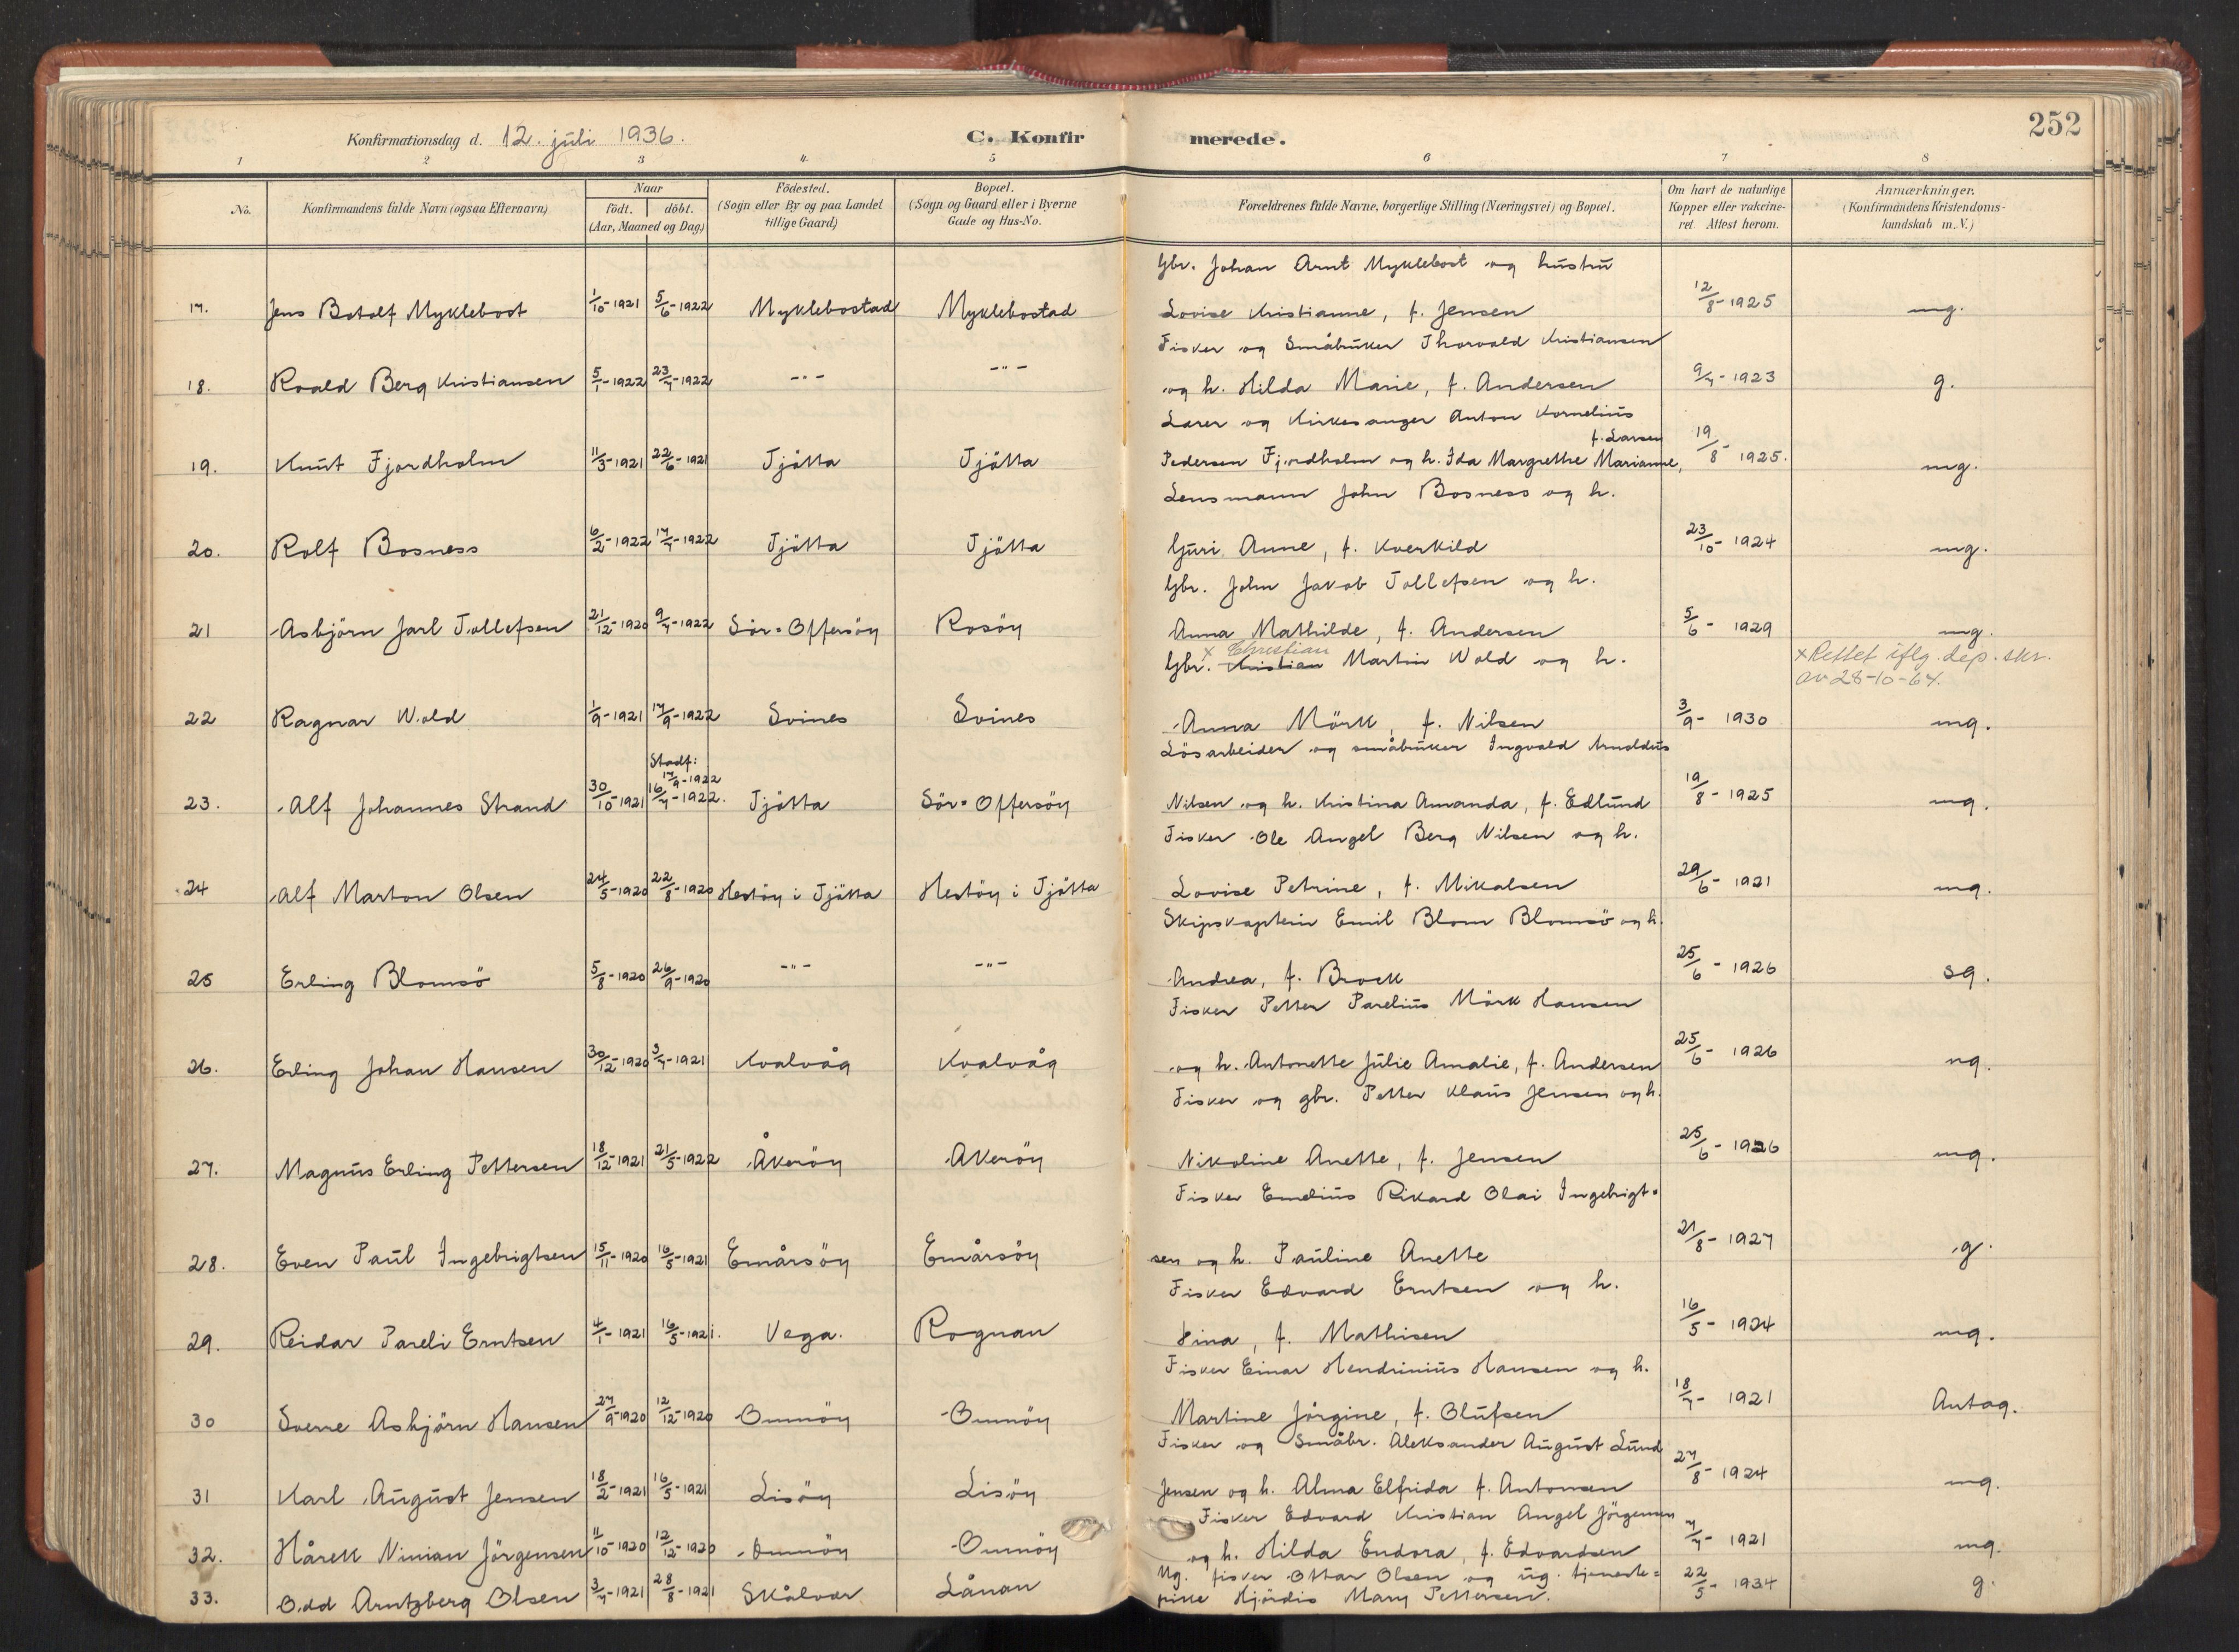 252
Konfirmationsdag d. 12. juli 1936.
C. Konfir merede.
1 2 3 4 5 6 7 8
No.
Konfirmandens fulde Navn (ogsaa Efternavn)
Naar
födt. döbt.
(Aar, Maaned og Dag)
Födested.
(Sogn eller By og paa Landet
tillige Gaard)
Bopæl.
(Sogn og Gaard eller i Byerne
Gade og Hus-No.
Forældrenes fulde Navne, borgerlige Stilling (Næringsvei) og Bopæl.
Om havt de naturlige
Kopper eller vakcine-
ret. Attest herom.
Anmærkninger.
(Konfirmandens Kristendoms-
kundskab m.V.)
Gbr. Johan Arnt Myklebost og hustru
17. Jens Botolf Myklebost 1/10-1921 5/6-1922 Myklebostad Myklebostad Lovise Kristianne, f. Jensen 12/8-1925 mg.
Fisker og Småbruker Thorvald Kristiansen
18. Roald Berg Kristiansen 5/1-1922 23/7-1922 -"- -"- og h. Hilda Marie, f. Andersen 9/7-1923 g.
Lærer og Kirkesanger Anton Kornelius
f. Larsen
19. Knut Fjordholm 11/3-1921 22/6-1921 Tjötta Tjötta Pedersen Fjordholm og h. Ida Margrethe Marianne, 19/8-1925. mg.
Lensmann John Bosness og h.
20. Rolf Bosness 6/2-1922 17/7-1922 Tjötta Tjötta Guri Anne, f. Kverkild 23/10-1924 mg.
Gbr. John Jakob Tollefsen og h.
21 Asbjörn Jarl Tollefsen 21/12-1920 9/7-1922 Sör-Offersöy Rosöy Anna Mathilde, f. Andersen 5/6-1929 mg.
x Christian
Gbr. Kristian Martin Wold og h.
x Rettet iflg. dep. skr.
av 28-10-64.
22 Ragnar Wold 1/9-1921 17/9-1922 Svines Svines Anna Mörk, f. Nilsen 3/9-1930 mg.
Lösarbeider og småbruker Ingvald Arnoldus
Stadf:
17/9-1922
23. Alf Johannes Strand 30/10-1921 16/7-1922. Tjötta Sör-Offersöy Nilsen og h. Kristina Amanda, f. Edlund 19/8-1925 mg.
Fisker Ole Angel Berg Nilsen og h.
24 Alf Marton Olsen 24/5-1920 22/8-1920 Hestöy i Tjötta Hestöy i Tjötta Lovise Petrine, f. Mikalsen 29/6-1921 mg.
Skipskaptein Emil Blom Blomsö og h.
25 Erling Blomsö 5/8-1920 26/9-1920 -"- -"- Andrea, f. Brock 25/6-1926 sg.
Fisker Petter Parelius Mörk Hansen
26. Erling Johan Hansen 30/12-1920 3/7-1921 Kvalvåg Kvalvåg og h. Antonette Julie Amalie, f. Andersen 25/6-1926 ng.
Fisker og gbr. Petter Klaus Jensen og h.
27. Magnus Erling Pettersen 18/12-1921 21/5-1922 Åkeröy Akeröy Nikoline Anette, f. Jensen 25/6-1926 mg.
Fisker Emelius Rikard Olai Ingebrigt-
28. Even Paul Ingebrigtsen 15/11-1920 16/5-1921 Emårsöy Emårsöy sen og h. Pauline Anette 21/8-1927 g.
Fisker Edvard Erntsen og h.
29. Reidar Pareli Erntsen 4/1-1921 16/5-1921. Vega. Rognan Hina, f. Mathisen 16/5-1924 mg.
Fisker Einar Hendrinius Hansen og h.
30 Sverre Asbjörn Hansen 27/9-1920 12/12-1920 Omnöy Omnöy Martine Jörgine, f. Olufsen 18/7-1921 Antag.
Fisker og Småbr. Aleksander August Lund
31 Karl August Jensen 18/2-1921 16/5-1921 Lisöy Lisöy Jensen og h. Alma Elfrida f. Antonsen 27/8-1924 mg.
Fisker Edvard Kristian Angel Jörgensen
32. Hårek Ninian Jörgensen 11/10-1920 12/12-1920 Omnöy Omnöy og h. Hilda Endora, f. Edvardsen 7/7-1921 mg.
Ug. fisker Ottar Olsen og ug. tjeneste-
33. Odd Arntzberg Olsen 3/7-1921 28/8-1921 Skålvær Lånan pike Hjördis Mary Pettersen. 22/5-1934 g.